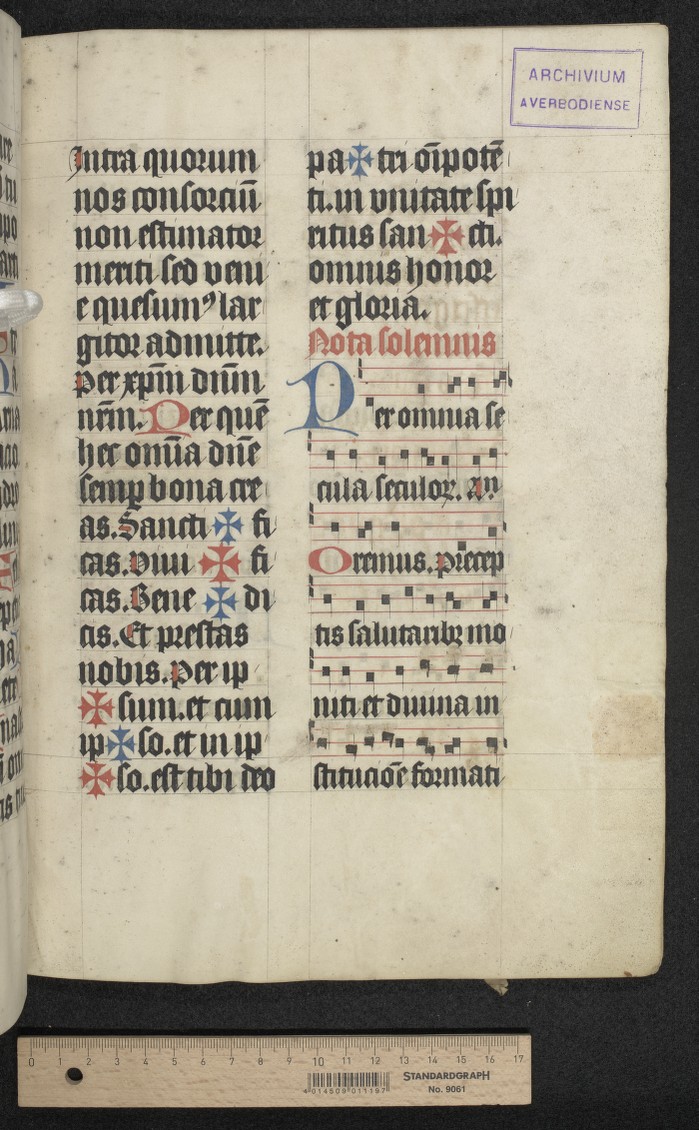 ARCHIVIUM
AVERBODIENSE
Intra quorum
nos consorciū
non estimator
meriti sed veni
e quesumꝰ lar
gitor admitte.
per xp̄m dn̄m
nr̄m. Per quē
hec om̄ia dn̄e
semꝑ bona cre
as. Sancti ✠ fi
cas. viui ✠ fi
cas. Bene ✠ di
cis. Et prestas
nobis. per ip
✠ sum. et cum
ip ✠ so. et in ip
✠ so. est tibi deo
pa ✠ tri oīpotē
ti. in vnitate spi
ritus san ✠ cti.
omnis honor
et gloria.
Nota solemnis
Per omnia se
cula seculoꝝ.
Oremus. precep
tis salutaribꝫ mo
niti et diuina in
stitucioē formati
0 1 2 3 4 5 6 7 8 9 10 11 12 13 14 15 16 17
4 014509 011197
STANDARDGRAPH
No. 9061